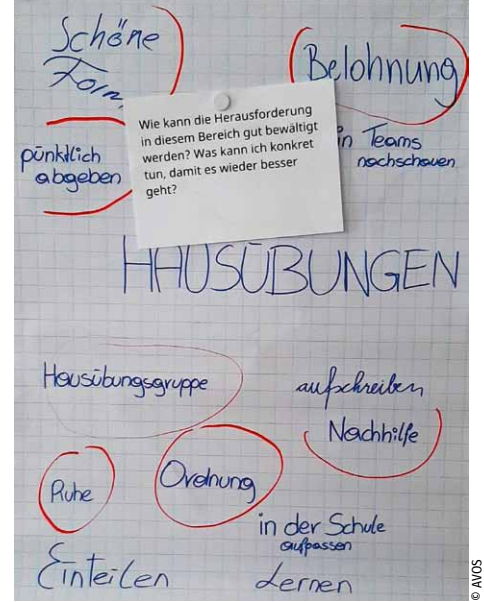 Schöne
Form
Belohnung
Wie kann die Herausforderung
in diesem Bereich gut bewältigt
werden? Was kann ich konkret
tun, damit es wieder besser
geht?
pünktlich
abgeben
in Teams
nachschauen
HAUSÜBUNGEN
Hausübungsgruppe
aufschreiben
Nachhilfe
Ruhe
Ordnung
in der Schule
aufpassen
Einteilen
Lernen
© AVOS